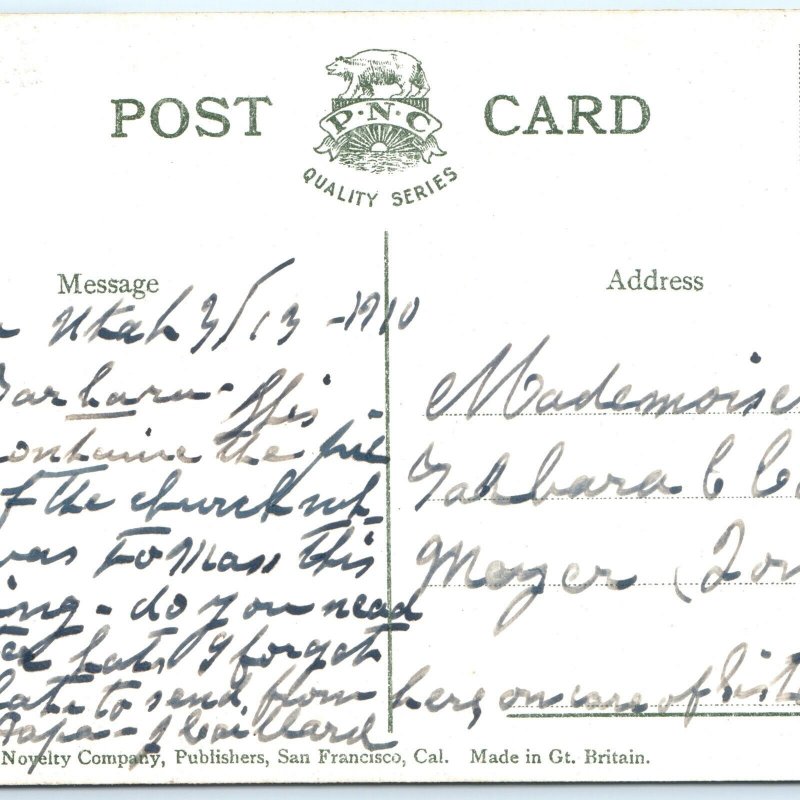 POST CARD
P·N·C
QUALITY SERIES
Message
Utah 3/13 - 1910
Barbara - This
containe the pic
of the church
was to Mass this
ing - do you nead
hats I forgot
to send from here, on care of Sist
Papa -
Address
Mademoise
Barbara C
Meyer
Novelty Company, Publishers, San Francisco, Cal. Made in Gt. Britain.